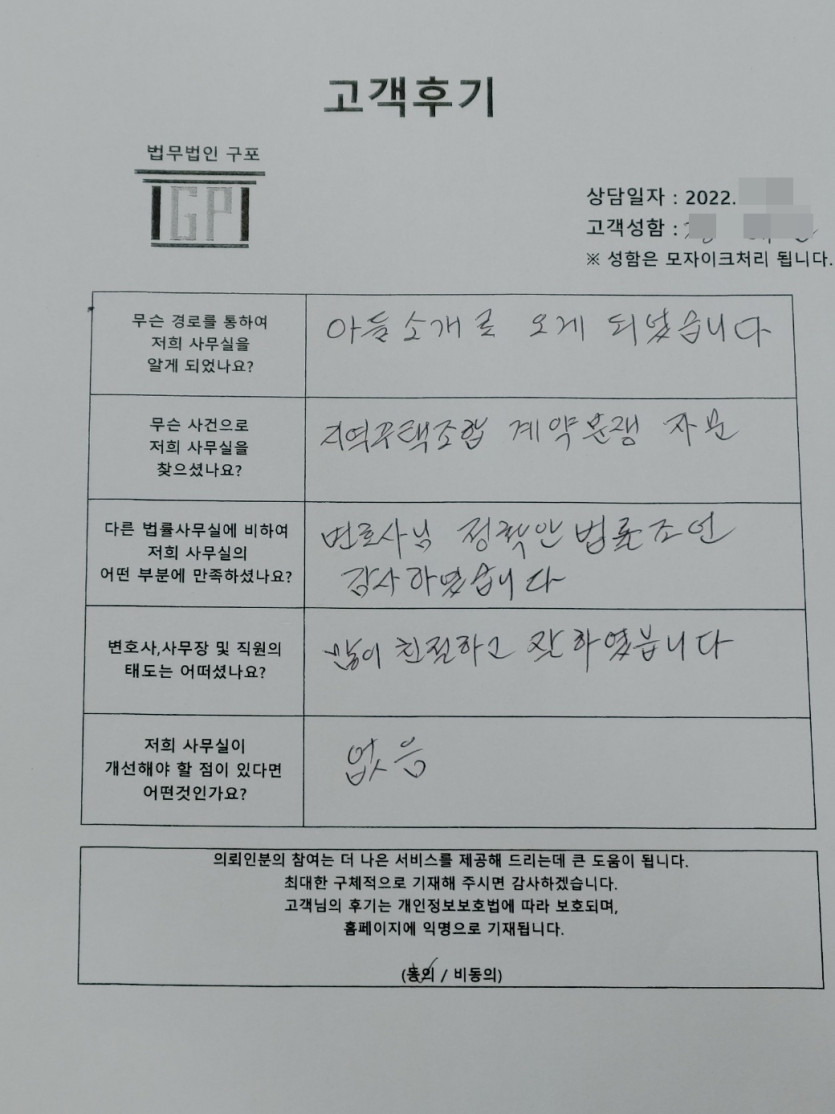 고객후기
법무법인 구포
GP
상담일자 : 2022.
고객성함 :
※ 성함은 모자이크처리 됩니다.
무슨 경로를 통하여
저희 사무실을
알게 되었나요?
아들소개로 오게 되었습니다
무슨 사건으로
저희 사무실을
찾으셨나요?
지역주택조합 계약분쟁 자문
다른 법률사무실에 비하여
저희 사무실의
어떤 부분에 만족하셨나요?
변호사님 정확안 법률조언
감사하였습니다
변호사,사무장 및 직원의
태도는 어떠셨나요?
많이 친절하고 잘하였습니다
저희 사무실이
개선해야 할 점이 있다면
어떤것인가요?
없음
의뢰인분의 참여는 더 나은 서비스를 제공해 드리는데 큰 도움이 됩니다.
최대한 구체적으로 기재해 주시면 감사하겠습니다.
고객님의 후기는 개인정보보호법에 따라 보호되며,
홈페이지에 익명으로 기재됩니다.
(동의 / 비동의)